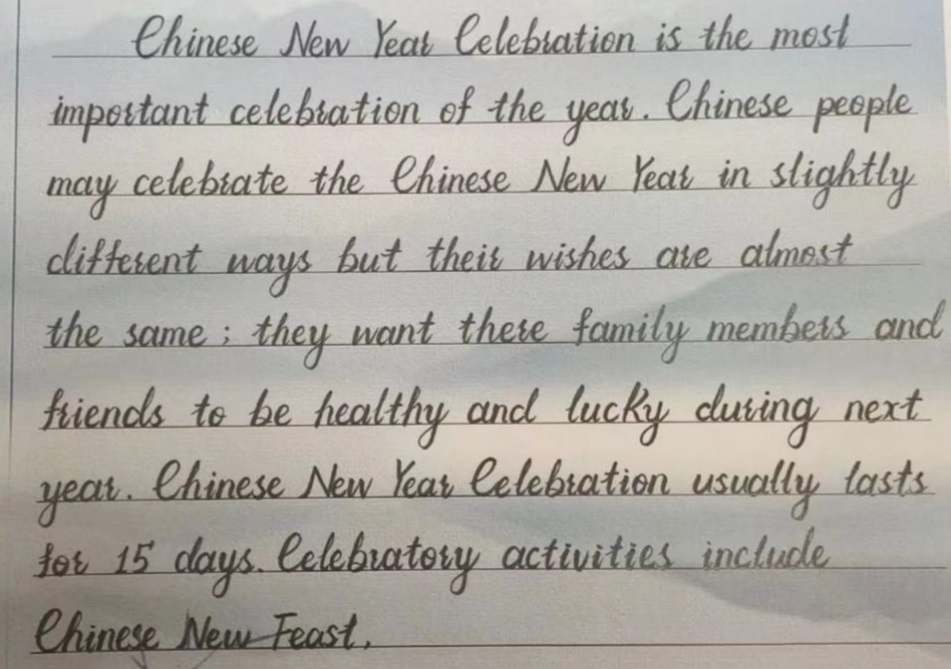 Chinese New Year Celebration is the most
important celebration of the year. Chinese people
may celebrate the Chinese New Year in slightly
different ways but their wishes are almost
the same; they want there family members and
friends to be healthy and lucky during next
year. Chinese New Year Celebration usually lasts
for 15 days. Celebratory activities include
Chinese New Feast.